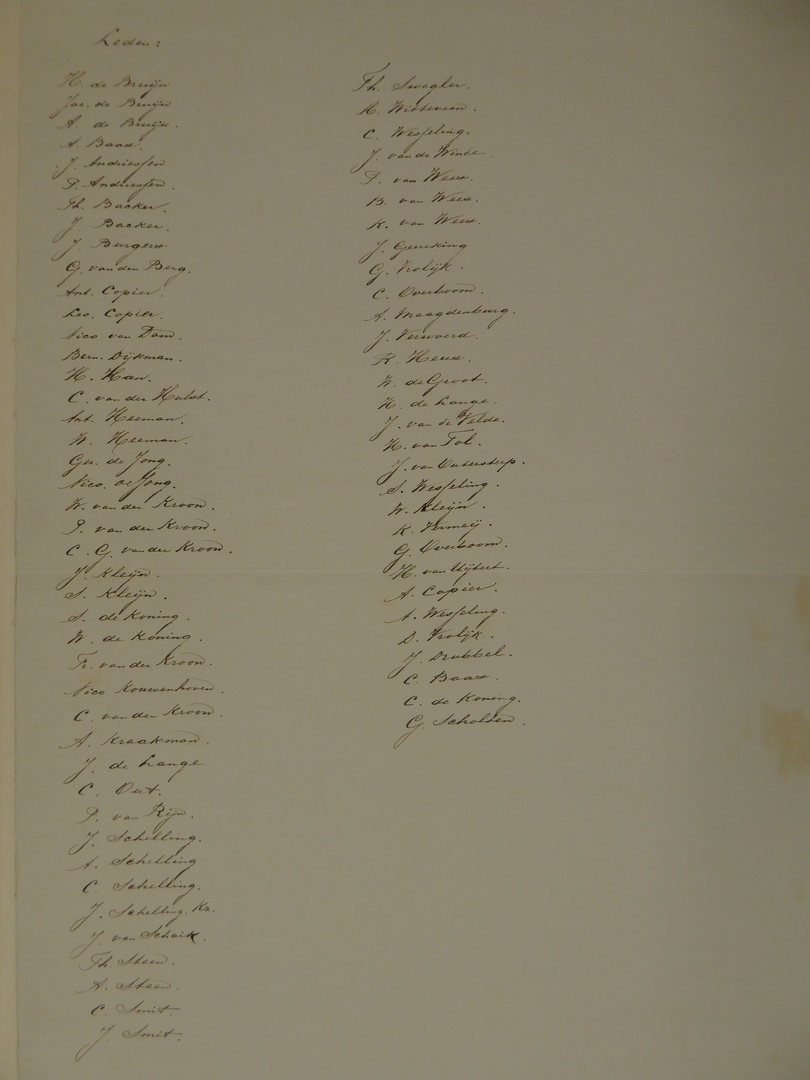 Leden:
H. de Bruijn
Jac. de Bruijn
A. de Bruijn.
A. Baas.
J. Andriessen
P. Andriessen.
Th. Backer.
J. Backer.
J. Burgers
G. van den Berg.
Ant. Copier.
Leo. Copier.
Nico van Dam.
Bern. Dijkman.
H. Han.
C. van der Hulst.
Ant. Heeman.
W. Heeman.
Ger. de Jong.
Nico. de Jong.
W. van der Kroon.
P. van der Kroon.
C. G. van der Kroon.
J. Kleijn.
S. Kleijn.
S. de Koning.
W. de Koning.
Fr. van der Kroon.
Nico Kouwenhoven.
C. van der Kroon.
A. Kraakman.
J. de Lange.
C. Out.
P. van Rijn.
J. Schilling.
A. Schilling
C. Schilling.
J. Schilling. Kz.
J. van Schaik.
Th. Steen.
A. Steen.
C. Smit.
J. Smit.
Th. Swegler.
R. Witteveen.
C. Wesseling.
J. van de Winde.
P. van Wees.
B. van Wees.
K. van Wees.
J. Geneking
G. Vrolijk.
C. Overboom.
A. Maagdenburg.
J. Verwoerd.
R. Heeus.
W. de Groot.
H. de Lange.
J. van de Velde.
H. van Tol.
J. van
S. Wesseling.
W. Kleijn.
K. Vermeij.
G. Overboom.
H. van Uijtert.
A. Copier.
A. Wesseling.
D. Vrolijk.
J. Drubbel.
C. Baas.
C. de Koning.
G. Scholten.